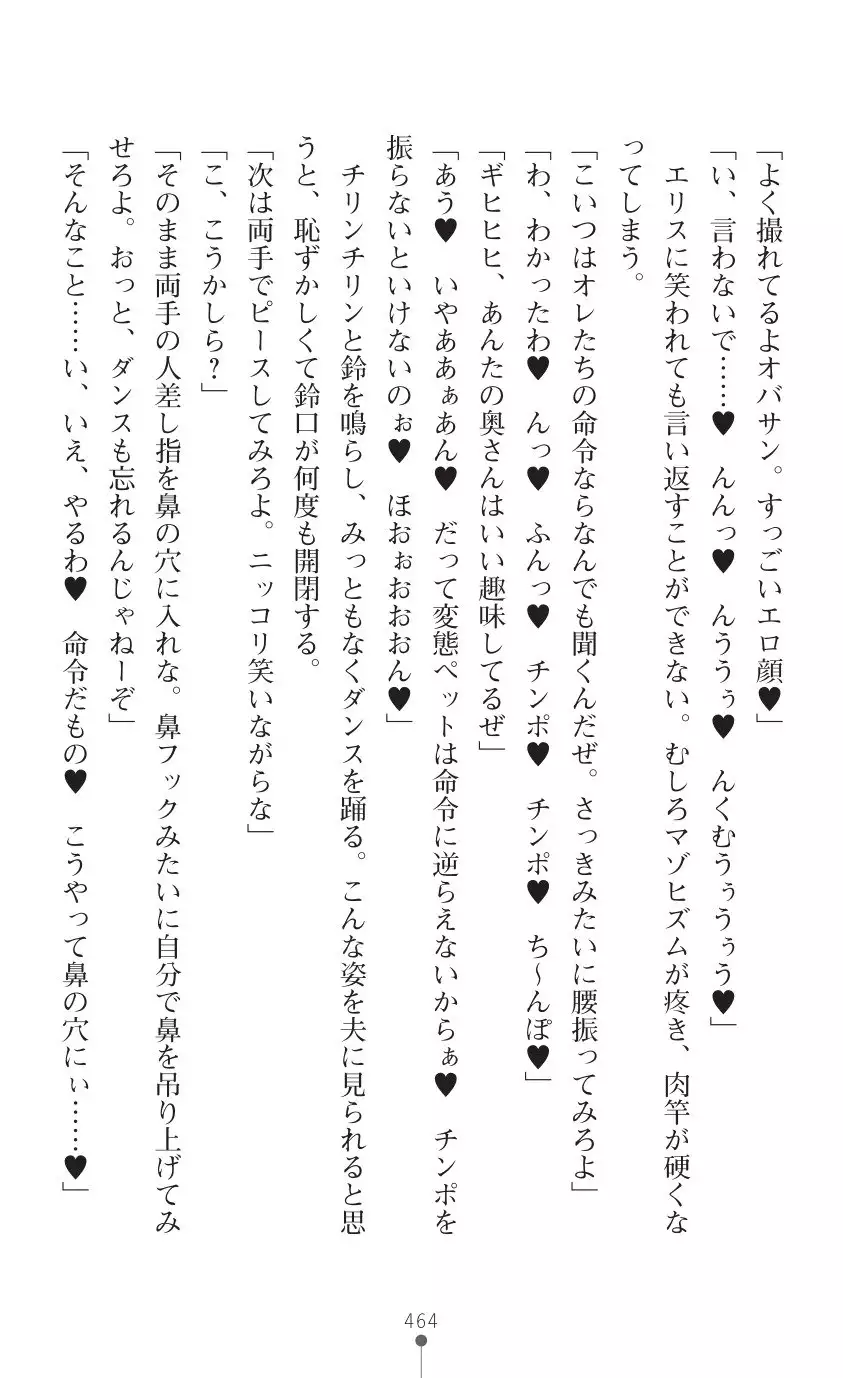 「よく撮れてるよオバサン。すっごいエロ顔♥」
「い、言わないで……♥　んんっ♥　んううぅ♥　んくむうぅうぅう♥」
　エリスに笑われても言い返すことができない。むしろマゾヒズムが疼き、肉竿が硬くな
ってしまう。
「こいつはオレたちの命令ならなんでも聞くんだぜ。さっきみたいに腰振ってみろよ」
「わ、わかったわ♥　んっ♥　ふんっ♥　チンポ♥　チンポ♥　ち〜んぽ♥」
「ギヒヒヒ、あんたの奥さんはいい趣味してるぜ」
「あう♥　いやああぁあん♥　だって変態ペットは命令に逆らえないからぁ♥　チンポを
振らないといけないのぉ♥　ほおぉおおおん♥」
　チリンチリンと鈴を鳴らし、みっともなくダンスを踊る。こんな姿を夫に見られると思
うと、恥ずかしくて鈴口が何度も開閉する。
「次は両手でピースしてみろよ。ニッコリ笑いながらな」
「こ、こうかしら？」
「そのまま両手の人差し指を鼻の穴に入れな。鼻フックみたいに自分で鼻を吊り上げてみ
せろよ。おっと、ダンスも忘れるんじゃねーぞ」
「そんなこと……い、いえ、やるわ♥　命令だもの♥　こうやって鼻の穴にぃ……♥」
464